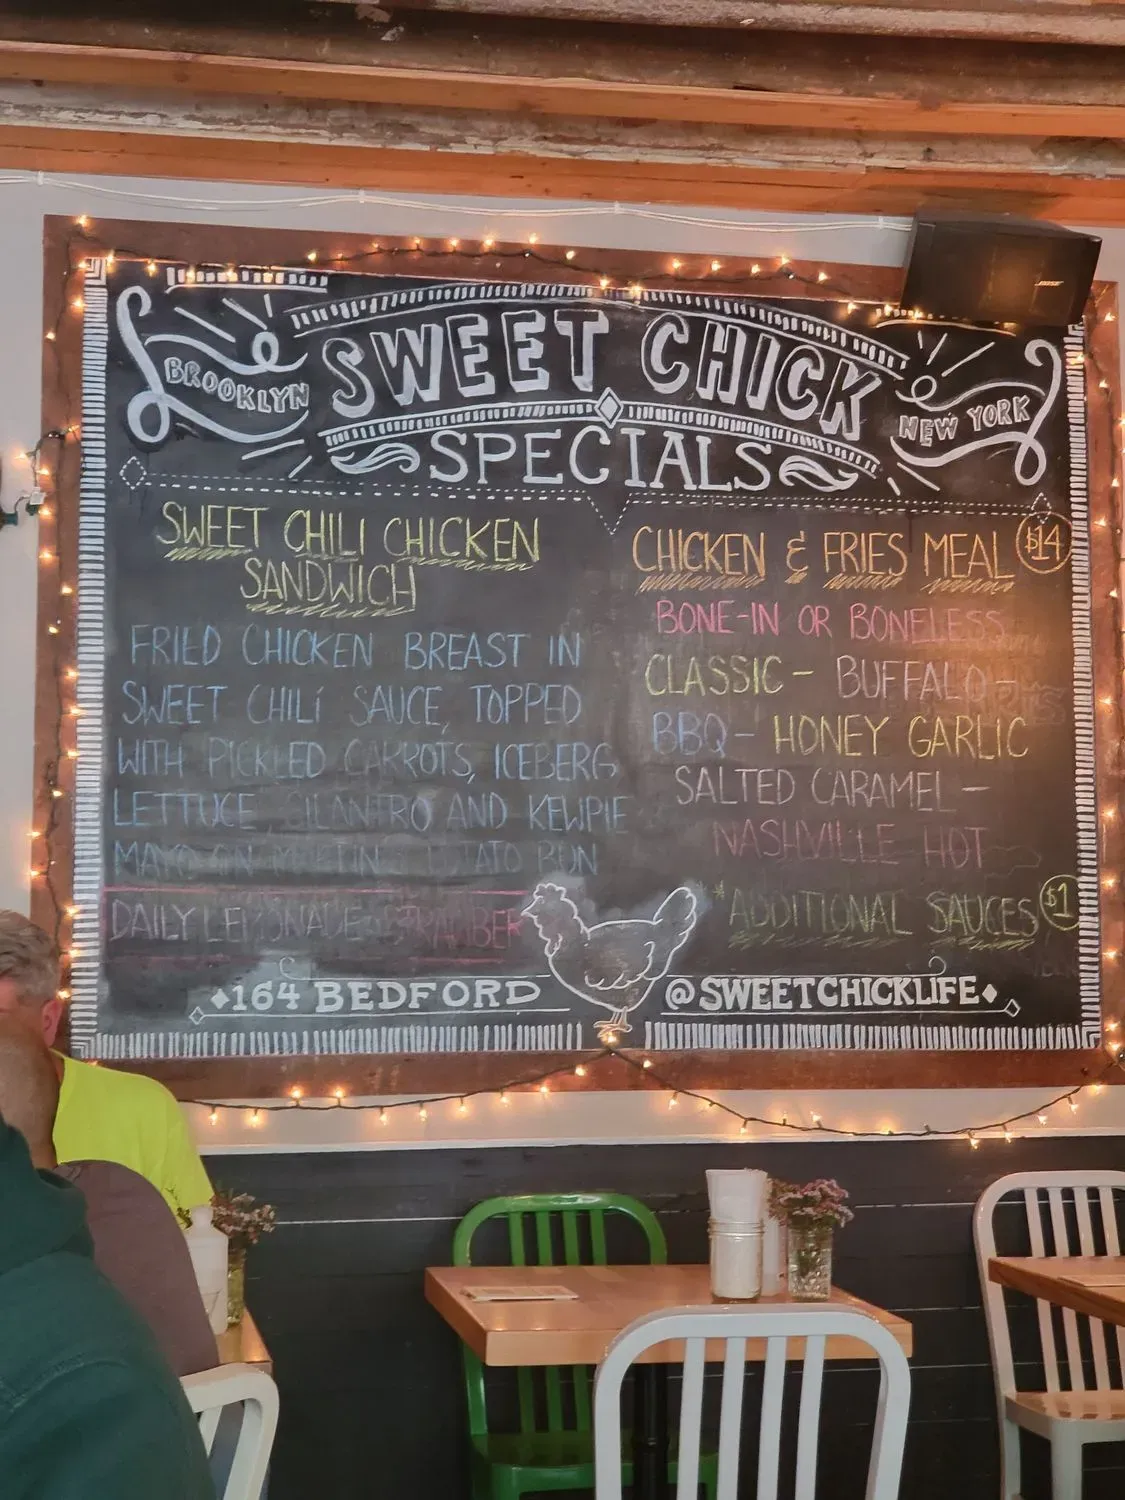 BROOKLYN
SWEET CHICK
NEW YORK
SPECIALS
SWEET CHILI CHICKEN
SANDWICH
FRIED CHICKEN BREAST IN
SWEET CHILI SAUCE, TOPPED
WITH PICKLED CARROTS, ICEBERG
LETTUCE, CILANTRO AND KEWPIE
MAYO ON MARTIN'S POTATO BUN
DAILY LEMONADE
CHICKEN & FRIES MEAL $14
BONE-IN OR BONELESS
CLASSIC - BUFFALO -
BBQ - HONEY GARLIC
SALTED CARAMEL -
NASHVILLE HOT
*ADDITIONAL SAUCES $1
164 BEDFORD
@SWEETCHICKLIFE
BOSE